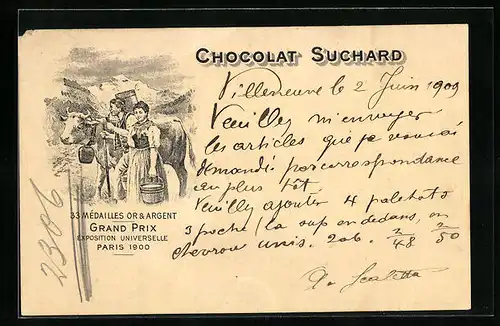 CHOCOLAT SUCHARD
Villeneuve le 2 Juin 1909
Veuillez m'envoyer
les articles que je vous ai
demandé par correspondance
au plus tôt
Veuillez ajouter 4 paletots
3 poche, la sup en dedans, en
chevron unis. 206. 2/48 2/50
33 MÉDAILLES OR & ARGENT
GRAND PRIX
EXPOSITION UNIVERSELLE
PARIS 1900